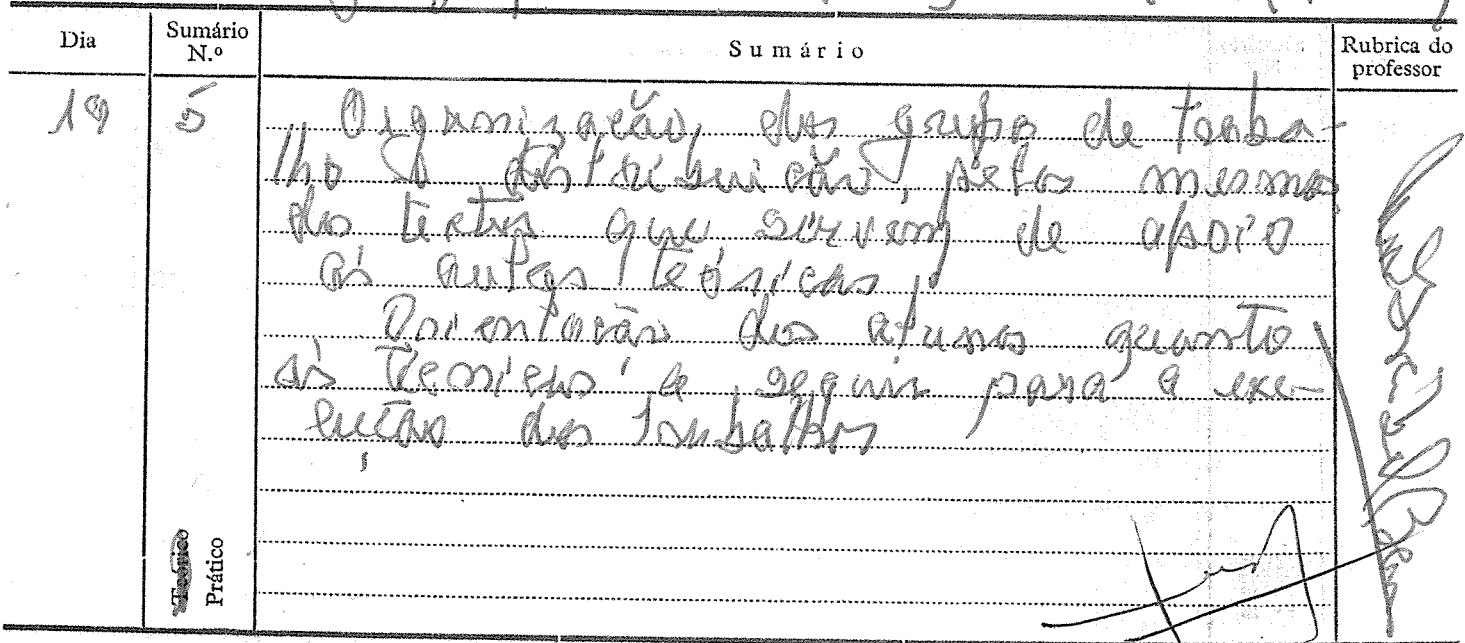 Dia
Sumário N.º
Sumário
Rubrica do professor
19
5
Organização, dos grupos de traba-
lho e distribuição, pelos mesmos
dos textos que servem de apoio
às aulas teóricas.
Orientação dos alunos quanto
às técnicas a seguir para a exe-
cução dos trabalhos
Teórico
Prático